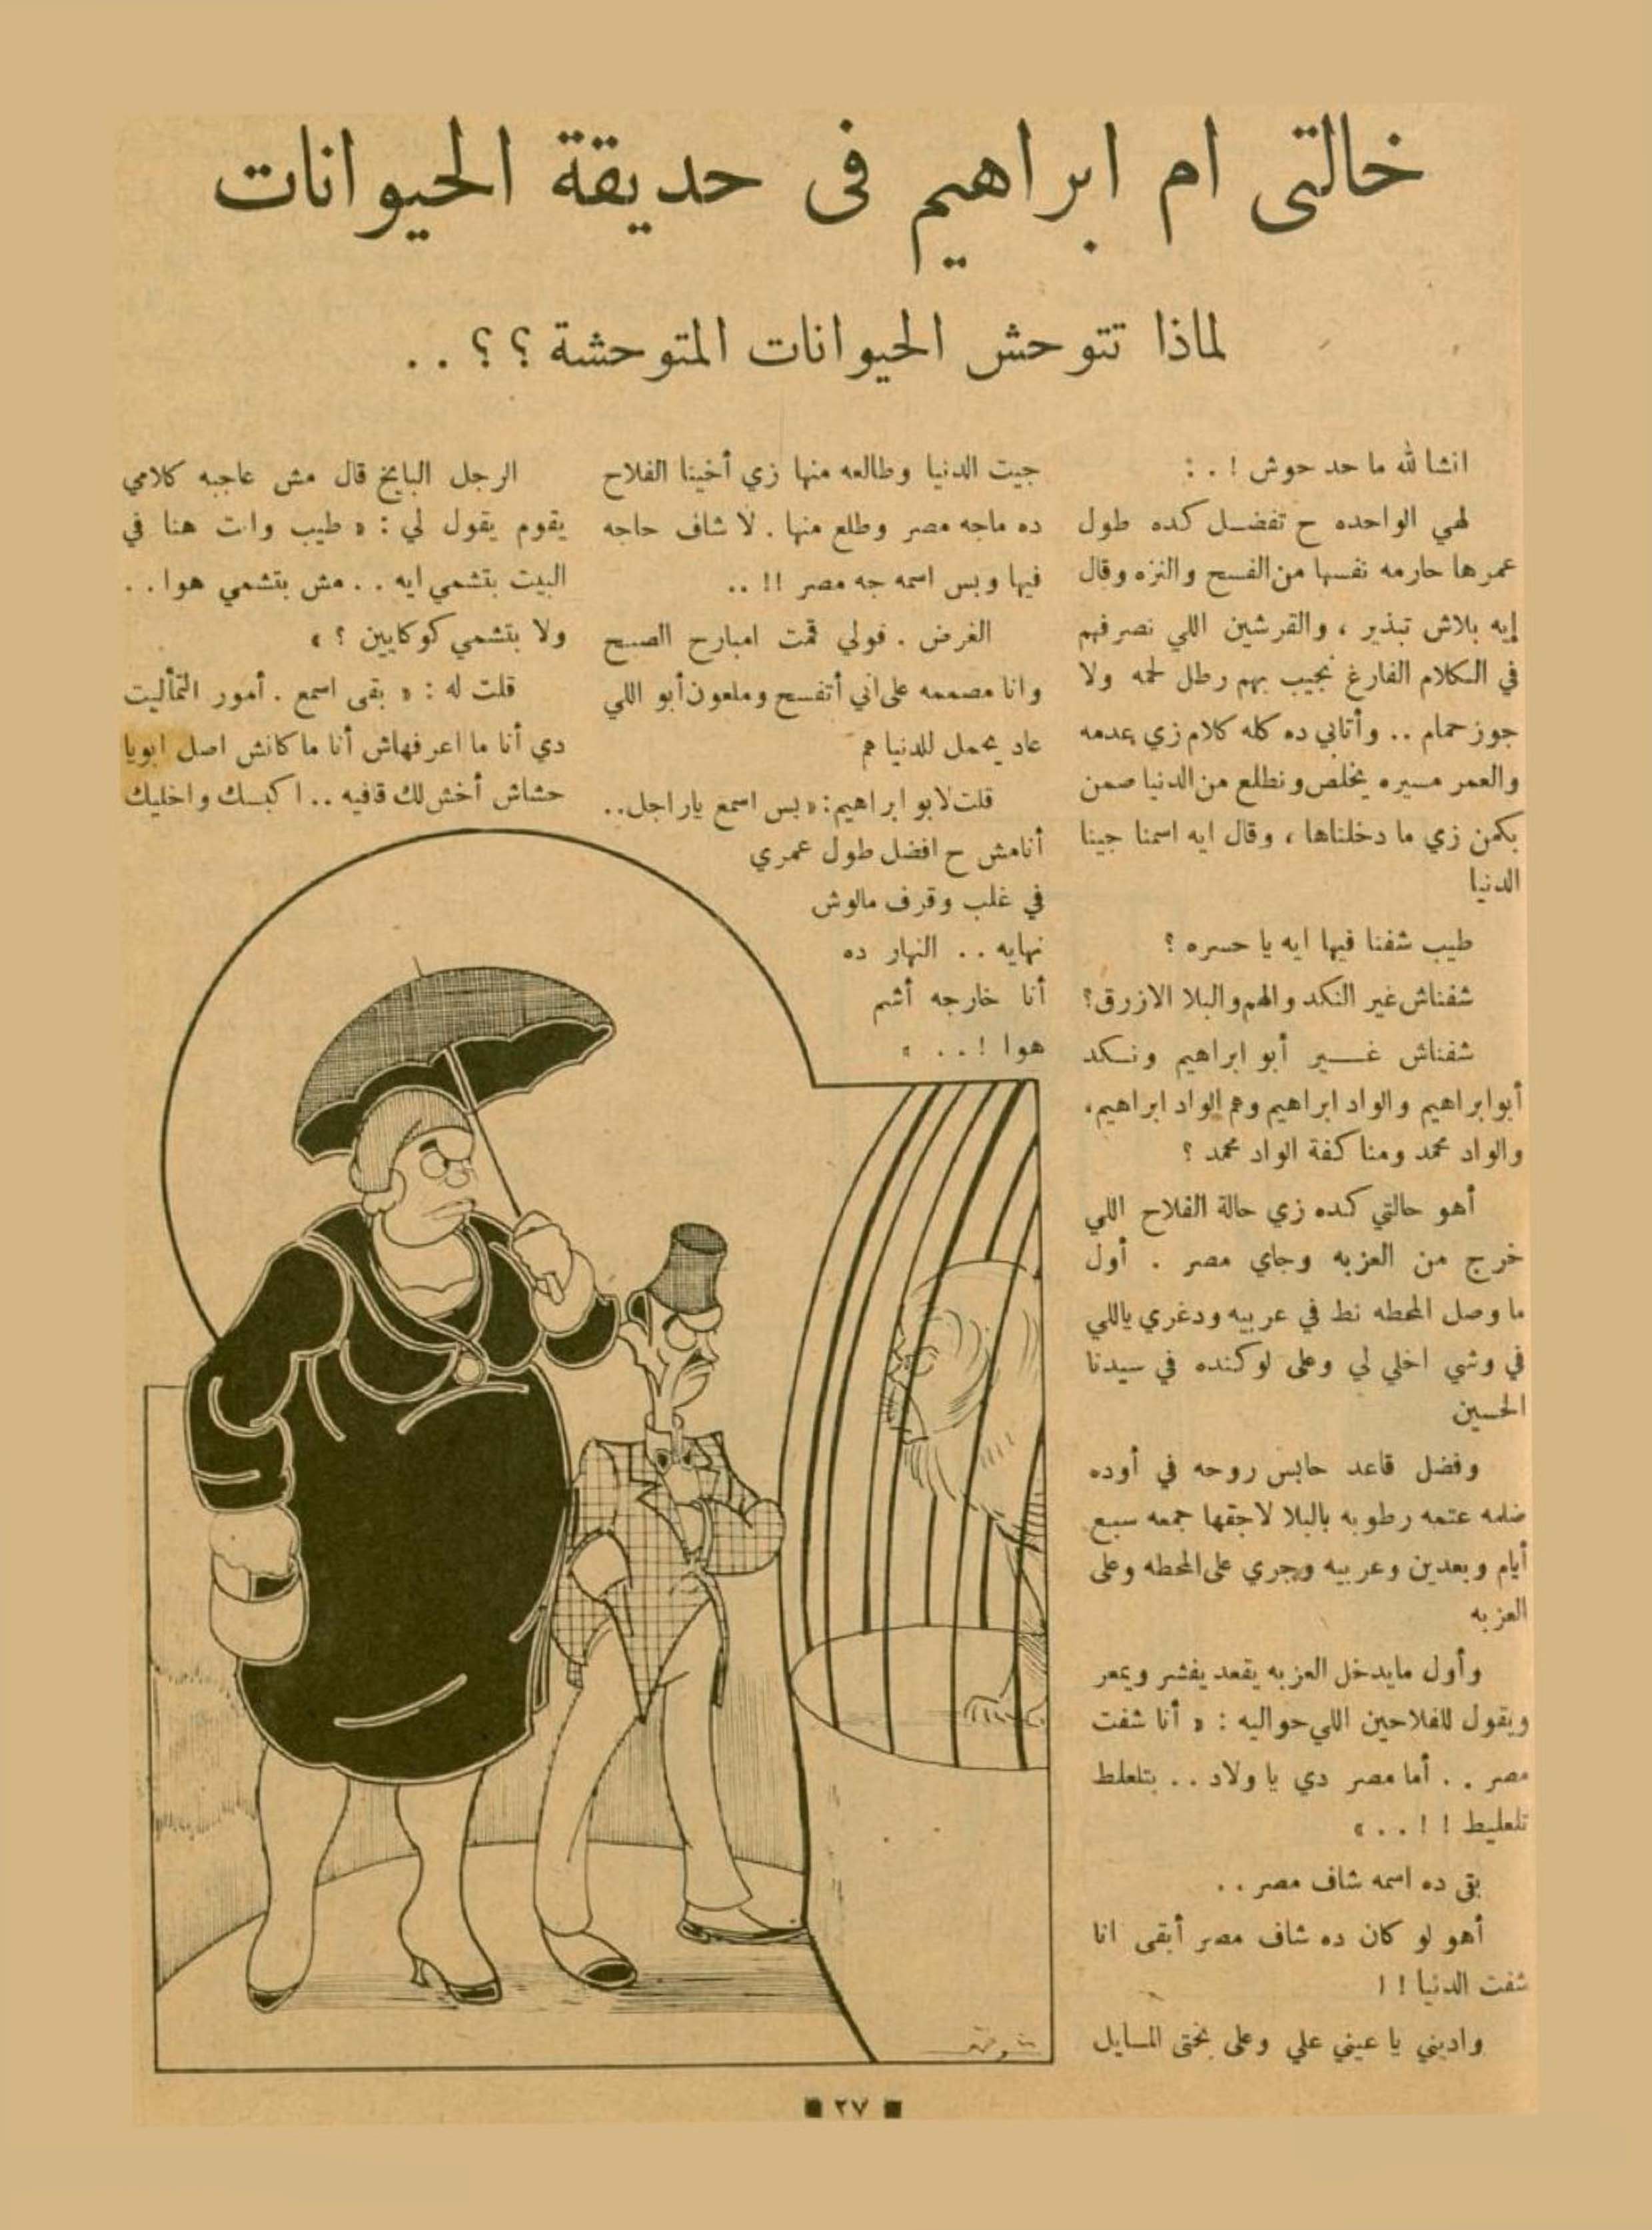 خالتي ام ابراهيم في حديقة الحيوانات
لماذا تتوحش الحيوانات المتوحشة ؟ ؟ . .
انشا لله ما حد حوش ! . . :
لهي الواحده ح تفضل كده طول
عمرها حارمه نفسها من الفسح والنزه وقال
إيه بلاش تبذير ، والقرشين اللي نصرفهم
في الكلام الفارغ نجيب بهم رطل لحمه ولا
جوز حمام .. وأتابي ده كله كلام زي عدمه
والعمر مسيره يخلص ونطلع من الدنيا صمن
بكمن زي ما دخلناها ، وقال ايه اسمنا جينا
الدنيا
طيب شفنا فيها ايه يا حسره ؟
شفناش غير النكد والهم والبلا الازرق؟
شفناش غير أبو ابراهيم ونكد
أبو ابراهيم والواد ابراهيم وهم الواد ابراهيم،
والواد محمد ومناكفة الواد محمد ؟
أهو حالتي كده زي حالة الفلاح اللي
خرج من العزبه وجاي مصر . أول
ما وصل المحطه نط في عربيه ودغري ياللي
في وشي اخلي لي وعلى لوكنده في سيدنا
الحسين
وفضل قاعد حابس روحه في أوده
ضلمه عتمه رطوبه بالبلا لاجقها جمعه سبع
أيام وبعدين وعربيه ويجري على المحطه وعلى
العزبه
وأول مايدخل العزبه يقعد يفشر ويمعر
ويقول للفلاحين اللي حواليه : « أنا شفت
مصر . . أما مصر دي يا ولاد . . بتلعلط
تلعليط ! ! . . »
بقى ده اسمه شاف مصر . .
أهو لو كان ده شاف مصر أبقى انا
شفت الدنيا ! !
واديني يا عيني علي وعلى بختى المايل
جيت الدنيا وطالعه منها زي أخينا الفلاح
ده ماجه مصر وطلع منها . لا شاف حاجه
فيها وبس اسمه جه مصر !! ..
الغرض . قولي قمت امبارح الصبح
وانا مصممه على اني أتفسح وملعون أبو اللي
عاد يحمل للدنيا هم
قلت لابو ابراهيم: « بس اسمع ياراجل..
أنا مش ح افضل طول عمري
في غلب وقرف مالوش
نهايه . . النهار ده
أنا خارجه أشم
هوا ! . . »
الرجل البايخ قال مش عاجبه كلامي
يقوم يقول لي : « طيب وانت هنا في
البيت بتشمي ايه . . مش بتشمي هوا . .
ولا بتشمي كوكايين ؟ »
قلت له : « بقى اسمع . أمور التأليت
دي أنا ما اعرفهاش أنا ما كانش اصل ابويا
حشاش أخش لك قافيه .. اكبسك واخليك
■ ٢٧ ■